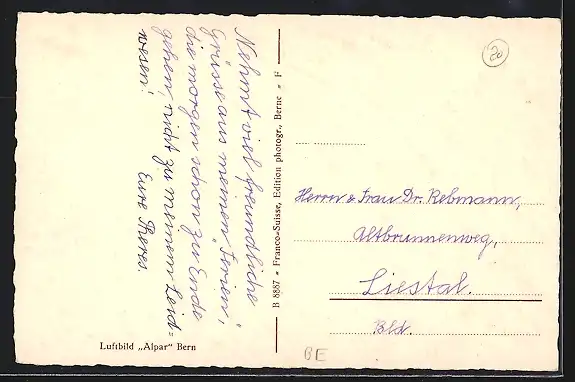 Nehmt viel freundliche
Grüsse aus meinen Ferien,
die morgen schon zu Ende
gehen, nicht zu meinem Leid-
wesen!
Eure
B 8887 - Franco-Suisse, Edition photogr., Berne - F
20
Herrn & Frau Dr. Rebmann,
Altbrunnenweg,
Liestal.
Bld.
Luftbild „Alpar" Bern
BE